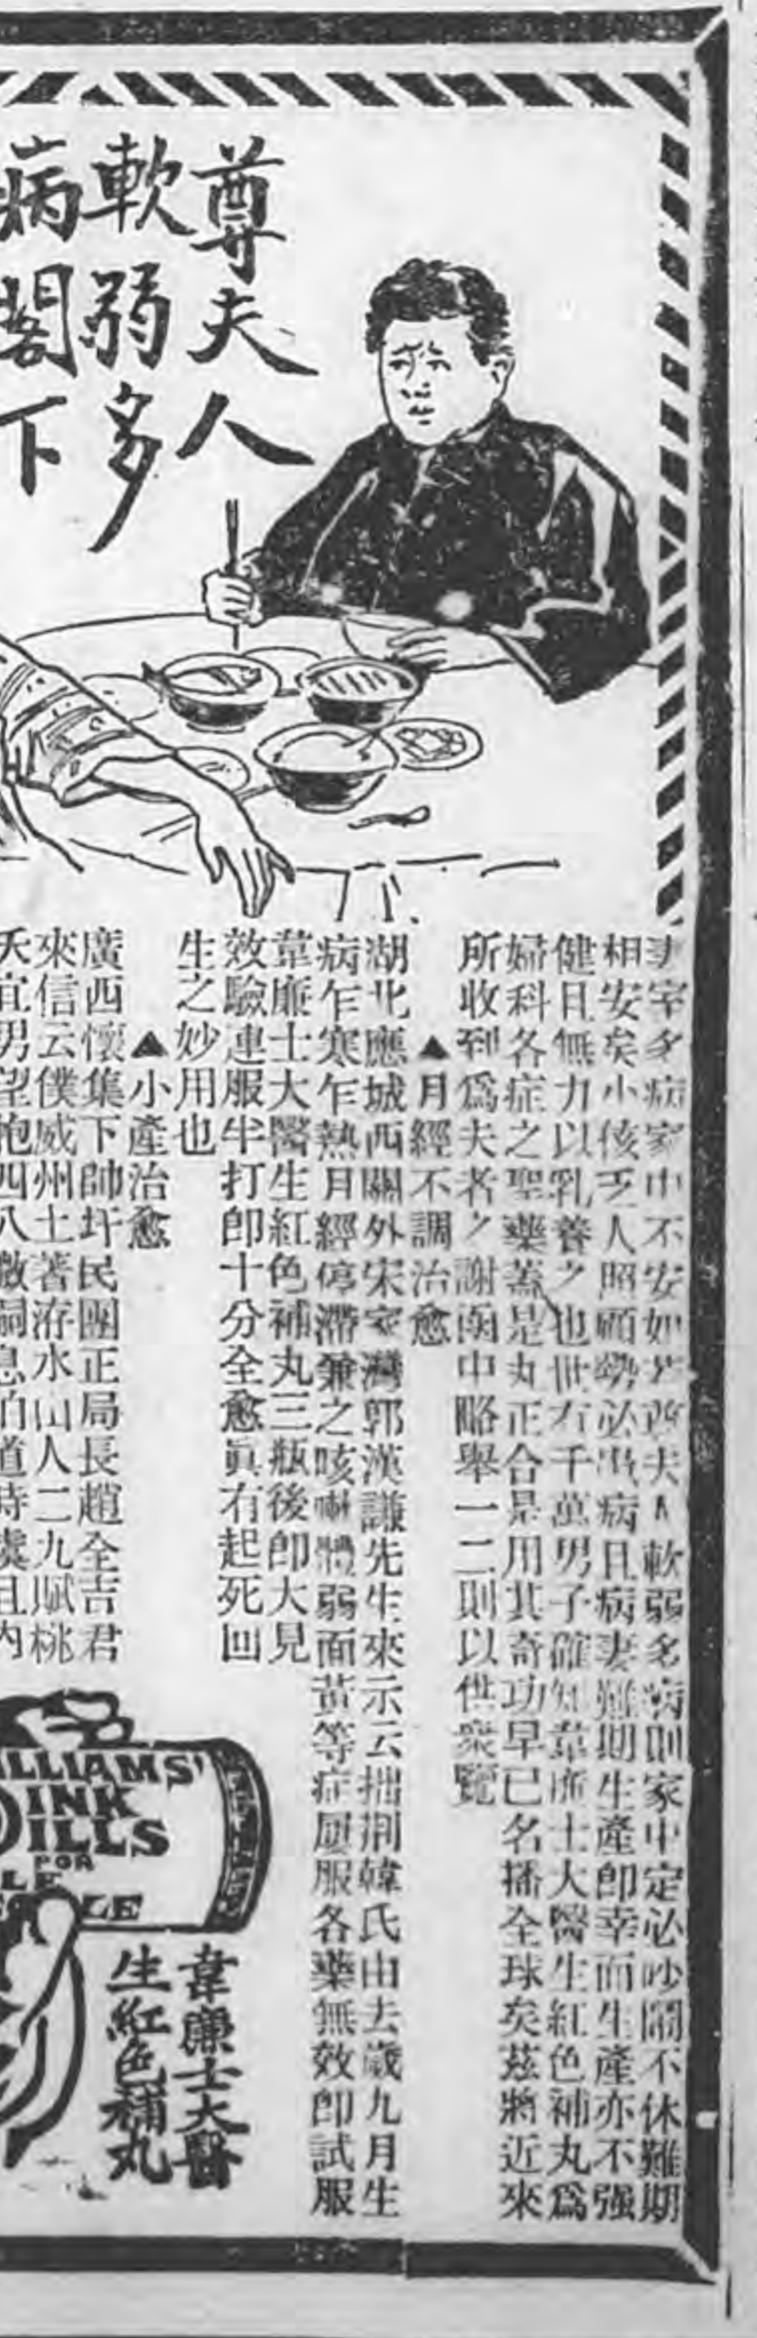 尊夫人
軟弱多
病閣下
妻室多病家中不安如尊夫人軟弱多病則家中定必吵鬧不休難期
相安矣小孩乏人照顧勢必出病且病妻難期生產即幸而生產亦不强
健且無力以乳養之也世有千萬男子確知韋廉士大醫生紅色補丸爲
婦科各症之聖藥蓋是丸正合是用其奇功早已名播全球矣茲將近來
所收到爲夫者之謝函中略舉一二則以供衆覽
▲月經不調治愈
湖北應城西關外宋家灣郭漢謙先生來示云拙荆韓氏由去歲九月生
病乍寒乍熱月經停滯兼之咳嗽體弱面黃等症屢服各藥無效即試服
韋廉士大醫生紅色補丸三瓶後即大見
效驗連服半打即十分全愈眞有起死回
生之妙用也
▲小產治愈
廣西懷集下帥圩民團正局長趙全吉君
來信云僕威州土著洊水山人二九賦桃
夭宜男望抱四八
ILLIAMS'
PINK
PILLS
FOR
LE
LE
韋廉士大醫
生紅色補丸